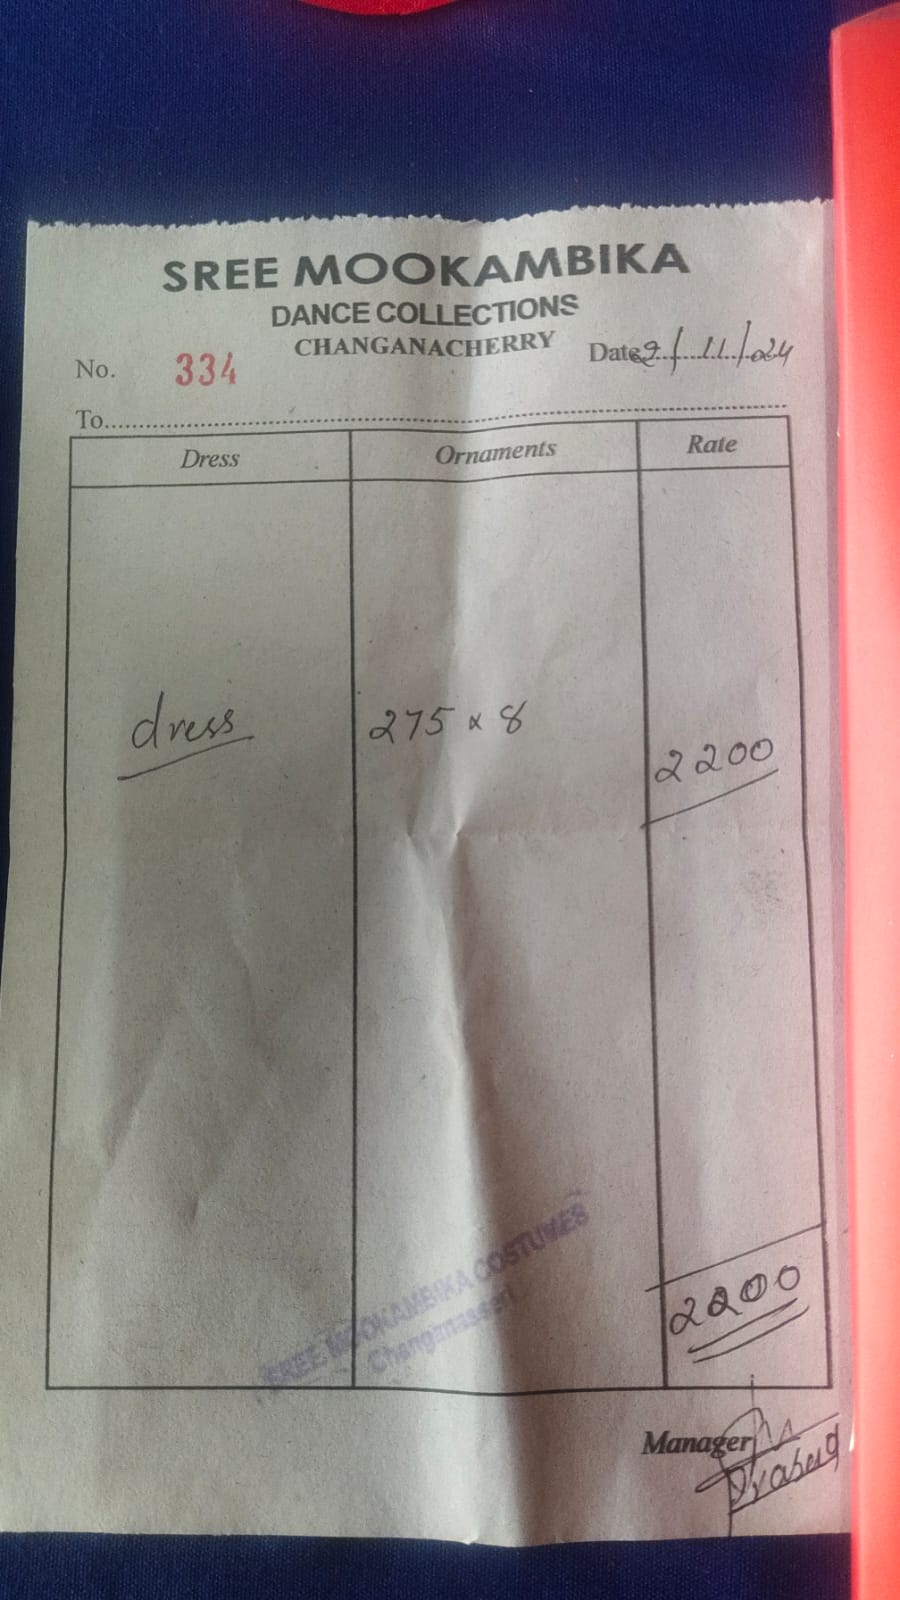 SREE MOOKAMBIKA
DANCE COLLECTIONS
CHANGANACHERRY
No. 334
Date 9/11/024
To
Dress Ornaments Rate
dress 275 x 8 2200
2200
SREE MOOKAMBIKA COSTUMES
Changanasseri
Manager